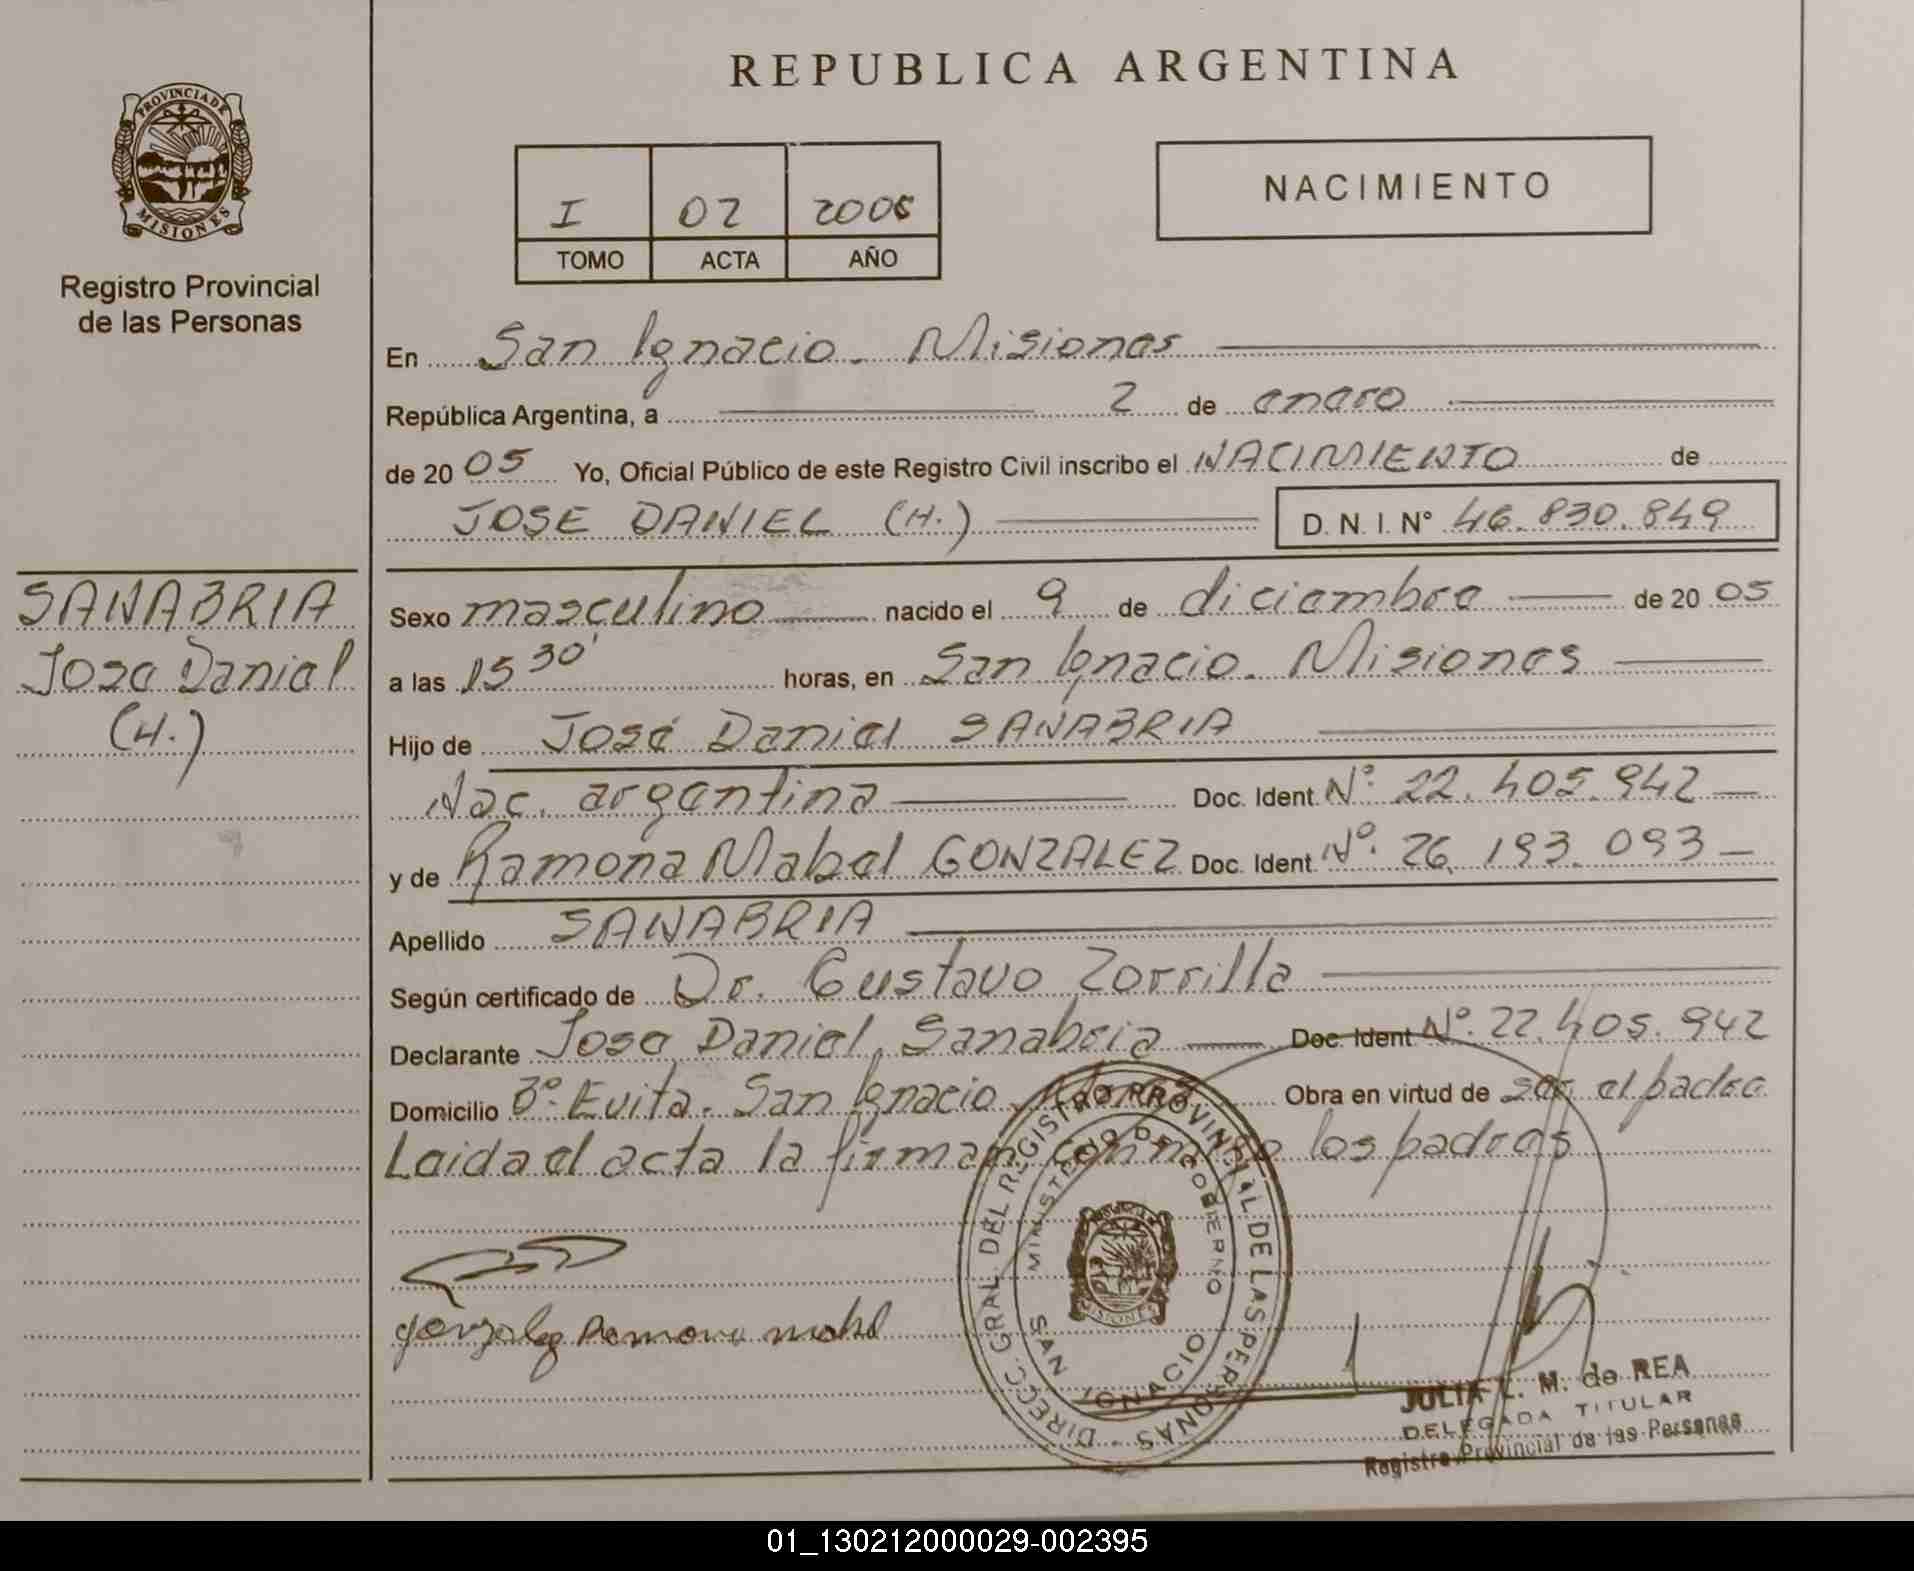 REPUBLICA ARGENTINA
PROVINCIA DE
MISIONES
Registro Provincial
de las Personas
I 02 2006
TOMO ACTA AÑO
NACIMIENTO
En San Ignacio. Misiones
República Argentina, a 2 de enero
de 20 05 Yo, Oficial Público de este Registro Civil inscribo el NACIMIENTO de
JOSE DANIEL (H.) D. N. I. N° 46.830.849
SANABRIA
Jose Daniel
(H.)
Sexo masculino nacido el 9 de diciembre de 20 05
a las 15 30' horas, en San Ignacio. Misiones
Hijo de José Daniel SANABRIA
Nac. argentina Doc. Ident. Nº 22.405.942
y de Ramona Mabel GONZALEZ Doc. Ident. Nº. 26.193.093
Apellido SANABRIA
Según certificado de Dr. Gustavo Zorrilla
Declarante Jose Daniel Sanabria Doc. Ident Nº. 22.405.942
Domicilio Bº. Evita. San Ignacio. Obra en virtud de ser el padre
Leida el acta la firman conmigo los padres
gonzalez Ramona mabel
DIRECC. GRAL. DEL REGISTRO PROVINCIAL DE LAS PERSONAS
MINISTERIO DE GOBIERNO
SAN IGNACIO
MISIONES
JULIA L. M. de REA
DELEGADA TITULAR
Registro Provincial de las Personas
01_130212000029-002395